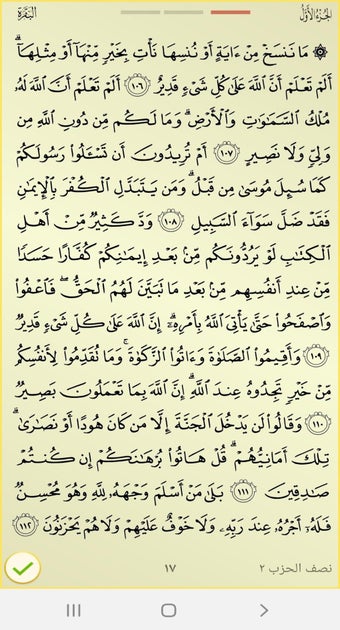 الجزء الأول البقرة
۞ مَا نَنسَخْ مِنْ ءَايَةٍ أَوْ نُنسِهَا نَأْتِ بِخَيْرٍ مِّنْهَآ أَوْ مِثْلِهَآ ۗ
أَلَمْ تَعْلَمْ أَنَّ ٱللَّهَ عَلَىٰ كُلِّ شَىْءٍ قَدِيرٌ ١٠٦ أَلَمْ تَعْلَمْ أَنَّ ٱللَّهَ لَهُۥ
مُلْكُ ٱلسَّمَـٰوَٰتِ وَٱلْأَرْضِ ۗ وَمَا لَكُم مِّن دُونِ ٱللَّهِ مِن
وَلِىٍّ وَلَا نَصِيرٍ ١٠٧ أَمْ تُرِيدُونَ أَن تَسْـَٔلُوا۟ رَسُولَكُمْ
كَمَا سُئِلَ مُوسَىٰ مِن قَبْلُ ۗ وَمَن يَتَبَدَّلِ ٱلْكُفْرَ بِٱلْإِيمَـٰنِ
فَقَدْ ضَلَّ سَوَآءَ ٱلسَّبِيلِ ١٠٨ وَدَّ كَثِيرٌ مِّنْ أَهْلِ
ٱلْكِتَـٰبِ لَوْ يَرُدُّونَكُم مِّنۢ بَعْدِ إِيمَـٰنِكُمْ كُفَّارًا حَسَدًا
مِّنْ عِندِ أَنفُسِهِم مِّنۢ بَعْدِ مَا تَبَيَّنَ لَهُمُ ٱلْحَقُّ ۖ فَٱعْفُوا۟
وَٱصْفَحُوا۟ حَتَّىٰ يَأْتِىَ ٱللَّهُ بِأَمْرِهِۦٓ ۗ إِنَّ ٱللَّهَ عَلَىٰ كُلِّ شَىْءٍ قَدِيرٌ
١٠٩ وَأَقِيمُوا۟ ٱلصَّلَوٰةَ وَءَاتُوا۟ ٱلزَّكَوٰةَ ۚ وَمَا تُقَدِّمُوا۟ لِأَنفُسِكُم
مِّنْ خَيْرٍ تَجِدُوهُ عِندَ ٱللَّهِ ۗ إِنَّ ٱللَّهَ بِمَا تَعْمَلُونَ بَصِيرٌ
١١٠ وَقَالُوا۟ لَن يَدْخُلَ ٱلْجَنَّةَ إِلَّا مَن كَانَ هُودًا أَوْ نَصَـٰرَىٰ ۗ
تِلْكَ أَمَانِيُّهُمْ ۗ قُلْ هَاتُوا۟ بُرْهَـٰنَكُمْ إِن كُنتُمْ
صَـٰدِقِينَ ١١١ بَلَىٰ مَنْ أَسْلَمَ وَجْهَهُۥ لِلَّهِ وَهُوَ مُحْسِنٌ
فَلَهُۥٓ أَجْرُهُۥ عِندَ رَبِّهِۦ وَلَا خَوْفٌ عَلَيْهِمْ وَلَا هُمْ يَحْزَنُونَ ١١٢
نصف الحزب ٢ ١٧